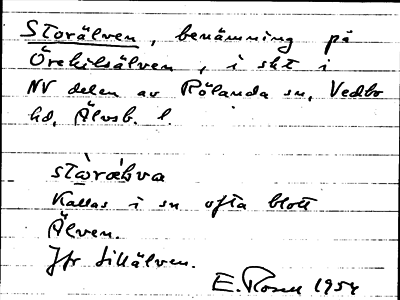 Storälven, benämning på
Örekilsälven, i sht i
NV delen av Rölanda sn, Vedbo
hd, Älvsb. l.
Kallas i sn ofta blott
Älven.
Jfr Lillälven.
E. Rosell 1954